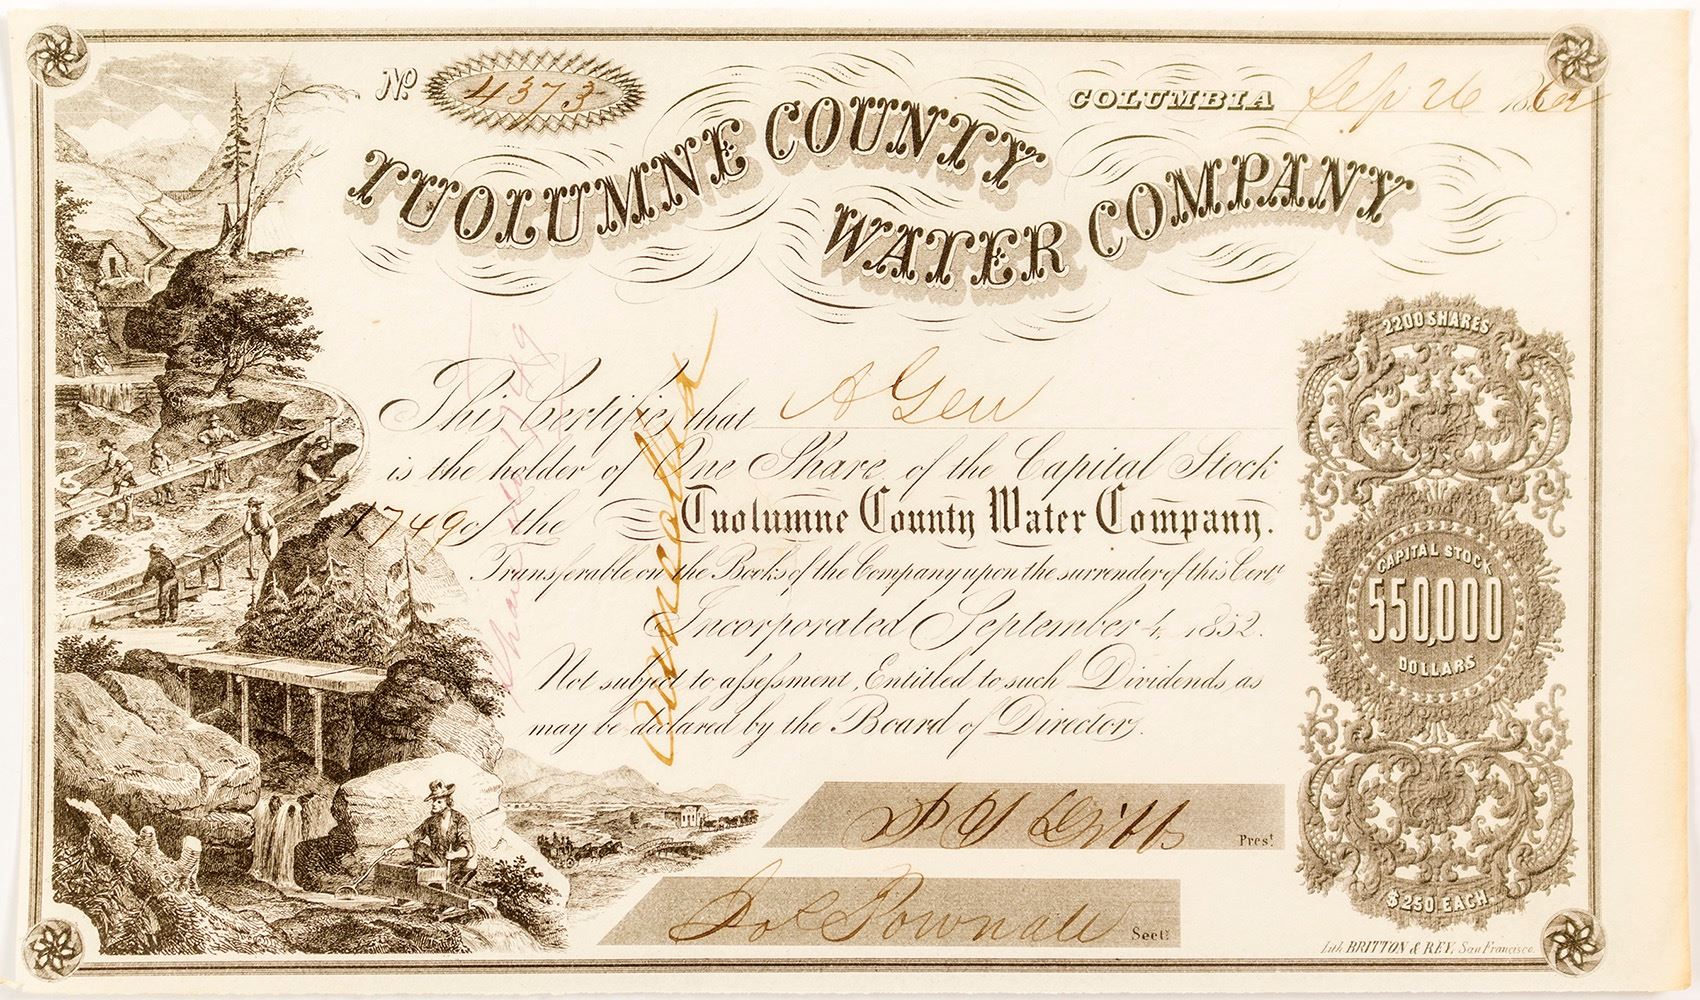 No. 4373
COLUMBIA Sep 26 1862
TUOLUMNE COUNTY
WATER COMPANY
This Certifies that A Gew
is the holder of One Share, of the Capital Stock
1749 of the Tuolumne County Water Company.
Transferable on the Books of the Company upon the surrender of this Cert.
Incorporated September 4, 1852.
Not subject to assessment, Entitled to such Dividends as
may be declared by the Board of Directors.
Cancelled
1749
2200 SHARES
CAPITAL STOCK
550,000
DOLLARS
$250 EACH
Prest.
Jos Pownall Sect.
Lith. BRITTON & REY, San Francisco.